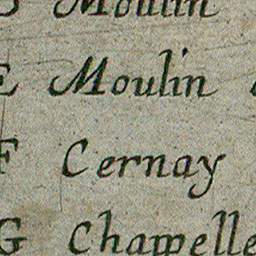 Moulin
E Moulin
F Cernay
G Chapelle